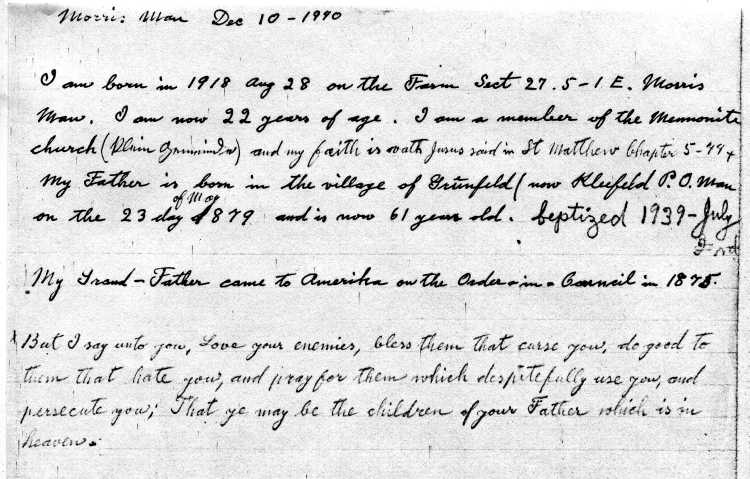 Morris Man Dec 10-1940
I am born in 1918 Aug 28 on the Farm Sect 27.5-1 E. Morris
Man. I am now 22 years of age. I am a member of the Mennonite
church ( and my faith is Jesus said in St Matthew Chapter 5-44
My Father is born in the village of Grünfeld (now Kleefeld P.O. Man
on the 23 day of May 1879 and is now 61 years old. beptized 1939-July
My Grand-Father came to Amerika on the Order-in-Council in 1875.
But I say unto you, Love your enemies, bless them that curse you, do good to
them that hate you, and pray for them which despitefully use you, and
persecute you; That ye may be the children of your Father which is in
heaven.